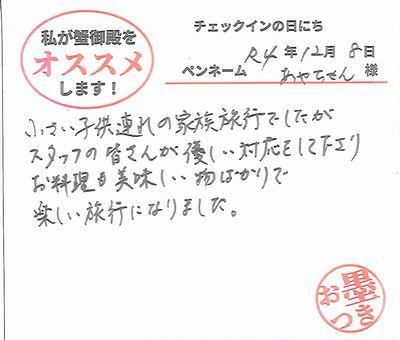 私が蟹御殿を
オススメ
します！
チェックインの日にち
R4年12月8日
ペンネーム あやちゃん 様
小さい子供連れの家族旅行でしたが
スタッフの皆さんが優しい対応をして下さり
お料理も美味しい物ばかりで
楽しい旅行になりました。
お墨つき